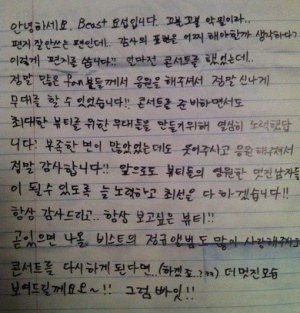 안녕하세요. Beast 요섭입니다. 꼬불꼬불 악필이라..
편지 잘 안쓰는 편인데.. 감사의 표현을 어찌 해야할까 생각하다가
이렇게 편지를 씁니다!! 얼마전 콘서트를 했었는데..
정말 많은 fan분들께서 응원을 해주셔서 정말 신나게
무대를 할 수 있었습니다!! 콘서트를 준비하면서도
최대한 뷰티를 위한 무대들을 만들기위해 열심히 노력했답
니다! 부족한 면이 많았었는데도 웃어주시고 응원해주셔서
정말 감사합니다!! 앞으로도 뷰티들의 영원한 멋진남자들
이 될 수 있도록 늘 노력하고 최선을 다 하겠습니다!!
항상 감사드리고.. 항상 보고싶은 뷰티!!
곧있으면 나올 비스트의 정규앨범도 많이 사랑해주시고
콘서트를 다시하게 된다면...(하겠죠..???) 더 멋진모습
보여드릴께요오~!! 그럼 빠잉!!